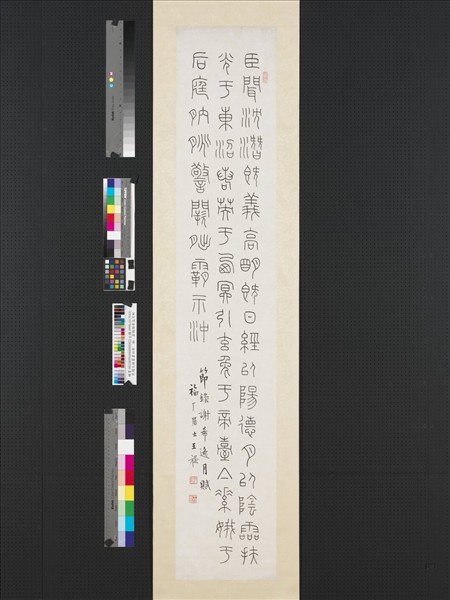 臣聞沈潛既義高明既日經以陽德月以陰靈扶
光于東沼嗣英于西冥引玄兔于帝臺亼素娥于
后庭朒朓警闕朏霸示沖
節錄謝希逸月賦
福厂居士王禔